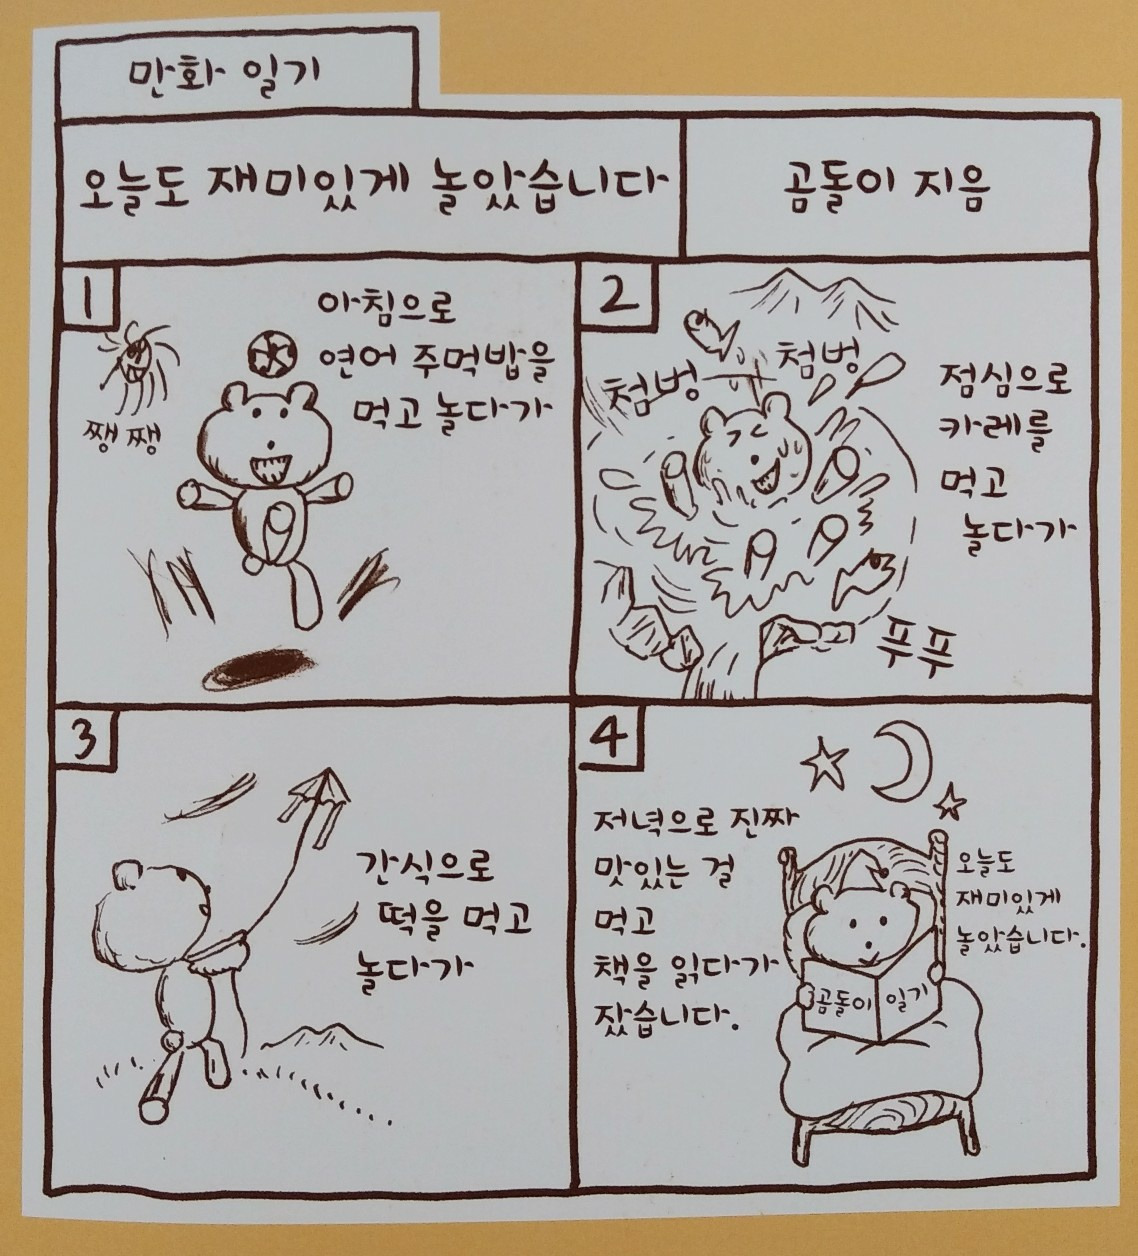 만화 일기
오늘도 재미있게 놀았습니다
곰돌이 지음
1
아침으로
연어 주먹밥을
먹고 놀다가
쨍쨍
2
첨벙
첨벙
점심으로
카레를
먹고
놀다가
푸푸
3
간식으로
떡을 먹고
놀다가
4
저녁으로 진짜
맛있는 걸
먹고
책을 읽다가
잤습니다.
오늘도
재미있게
놀았습니다.
곰돌이 일기